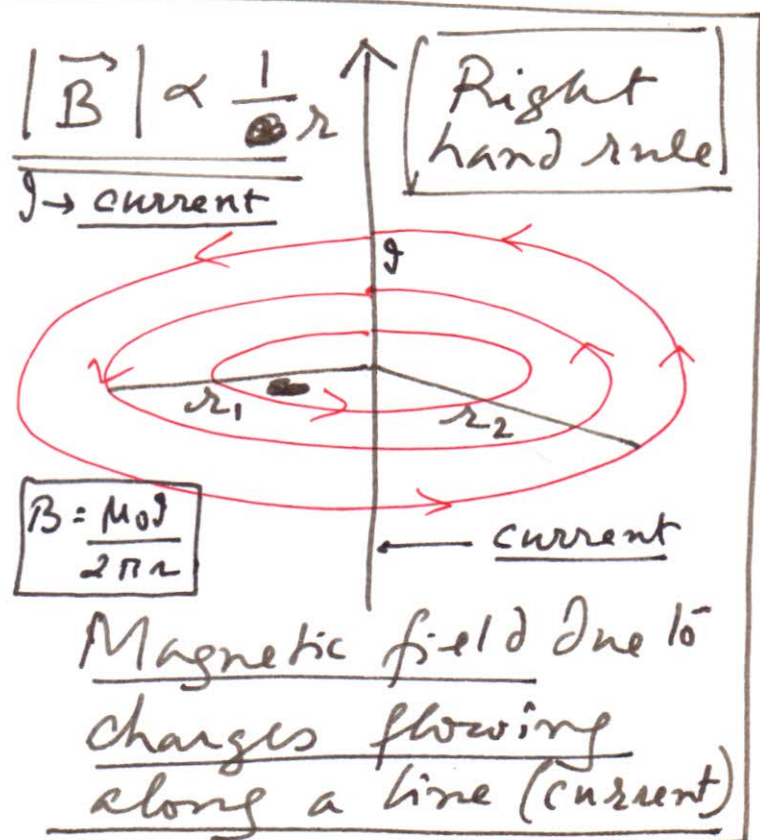 |B⃗| ∝ 1/r
I → current
Right
hand rule
I
r₁
r₂
B = μ₀I/2πr
current
Magnetic field due to
charges flowing
along a line (current)